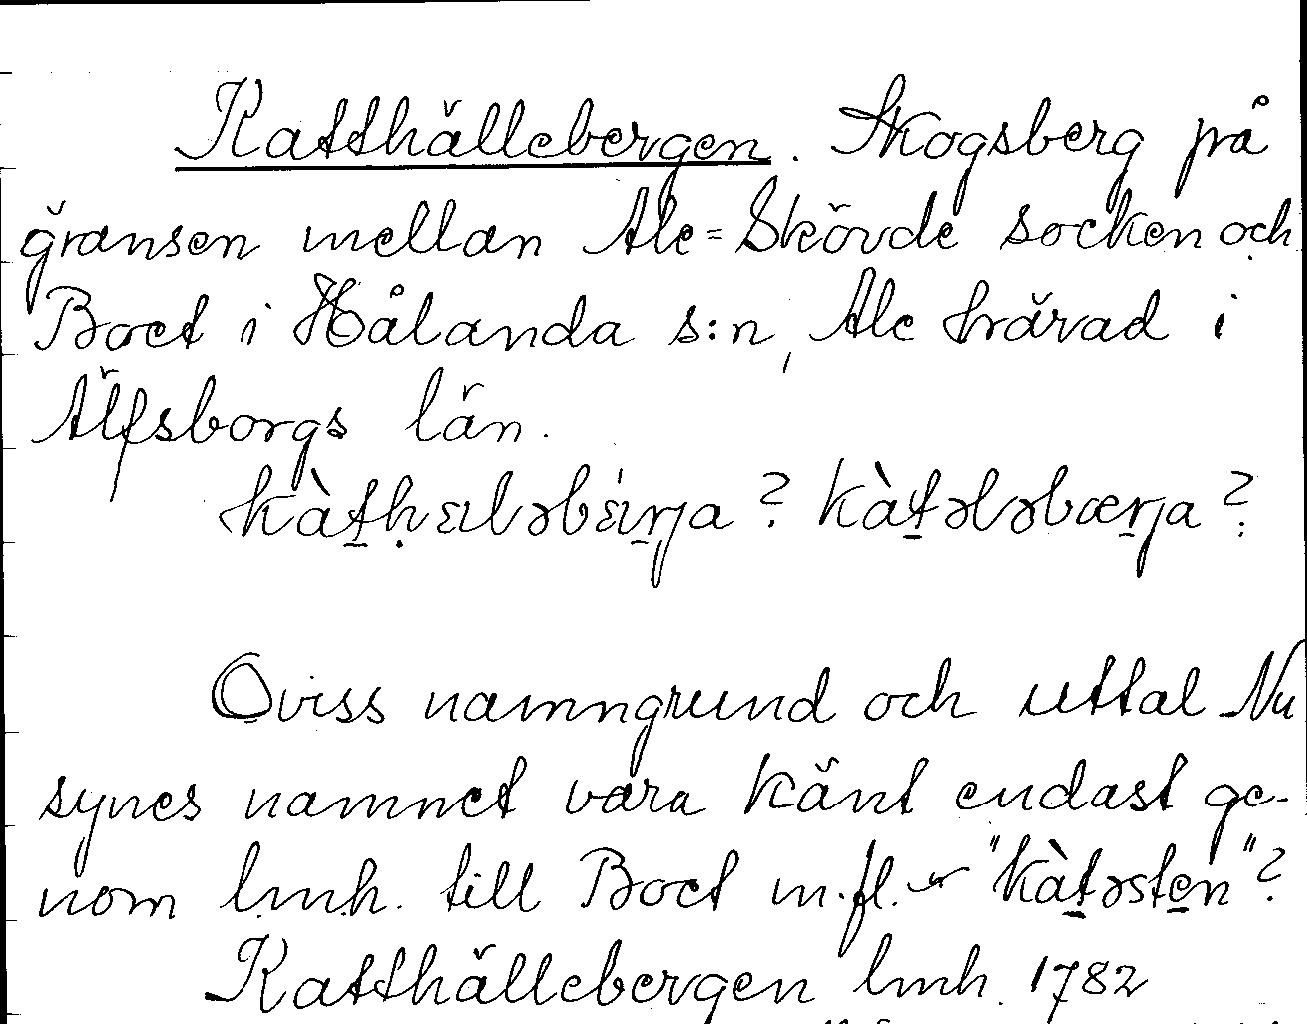 Katthällebergen. Skogsberg på
gränsen mellan Ale=Skövde socken och
Boet i Hålanda s:n, Ale härad i
Älfsborgs län.
kàthɛlǝbɛ̀rja? kàtǝlǝbærja?
Oviss namngrund och uttal Nu
synes namnet vara känt endast ge-
nom lmh. till Boet m.fl. "kàtǝsten"?
Katthällebergen lmh. 1782